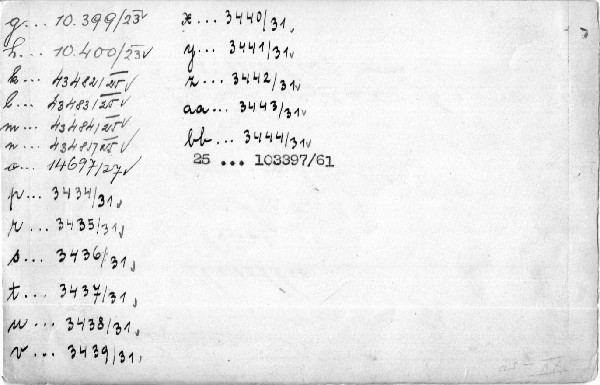 g... 10.399/23 √
h... 10.400/23 √
k... 43482/25 √
l... 43483/25 √
m... 43484/25 √
n... 43485/25 √
o... 14697/27 √
p... 3434/31 √
r... 3435/31 √
s... 3436/31 √
t... 3437/31 √
u... 3438/31 √
v... 3439/31 √
x... 3440/31 √
y... 3441/31 √
z... 3442/31 √
aa... 3443/31 √
bb... 3444/31 √
25 ... 103397/61